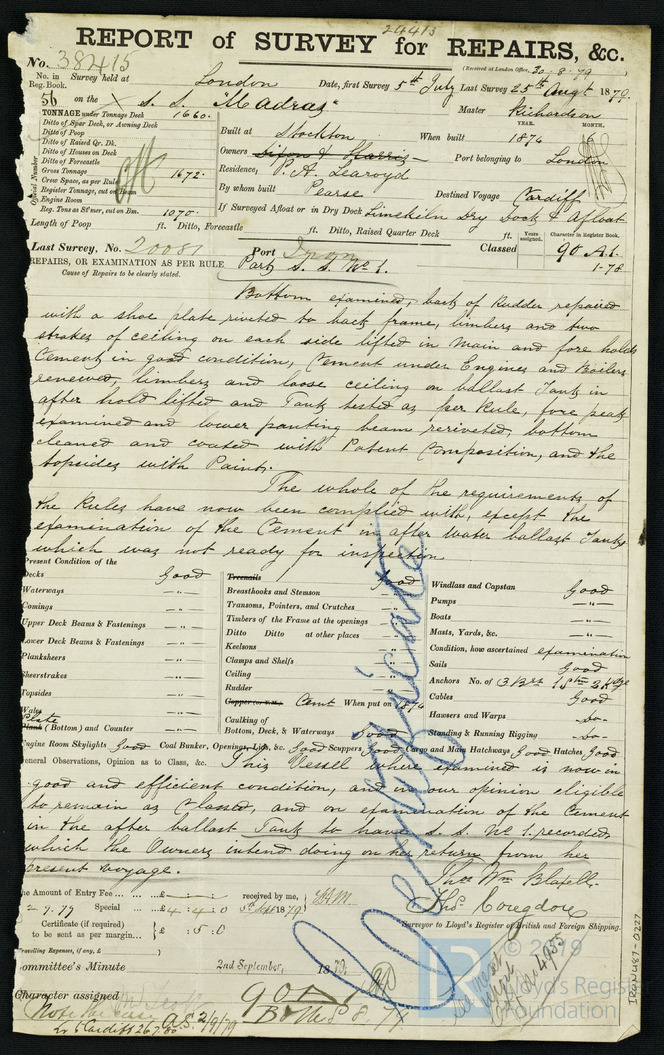 24415
REPORT of SURVEY for REPAIRS, &c.
No. 38415
(Received at London Office, 30-8-79)
No. in Reg. Book. Survey held at London Date, first Survey 5th July Last Survey 25th Augt 1879.
56 on the S. S. "Madras" Master Richardson
TONNAGE under Tonnage Deck 1660.
Ditto of Spar Deck, or Awning Deck
Ditto of Poop
Ditto of Raised Qr. Dk.
Ditto of Houses on Deck
Ditto of Forecastle
Gross Tonnage 1672.
Crew Space, as per Rule
Register Tonnage, cut on Beam
Engine Room
Reg. Tons as St'mer, cut on Bm. 1070.
Official Number
YEAR. MONTH.
Built at Stockton When built 1874 6
Owners P. A. Learoyd Port belonging to London
Residence,
By whom built Pearse Destined Voyage Cardiff
If Surveyed Afloat or in Dry Dock Limekiln Dry Dock & Afloat
Length of Poop ft. Ditto, Forecastle ft. Ditto, Raised Quarter Deck ft.
Years assigned. Character in Register Book.
Last Survey, No. 20081 Port Classed 90 A.1.
1-78
REPAIRS, OR EXAMINATION AS PER RULE Part S. S. No 1.
Cause of Repairs to be clearly stated.
Bottom examined, back of Rudder repaired
with a shoe plate riveted to back frame, limbers and two
strakes of ceiling on each side lifted in Main and fore holds
Cement in good condition, Cement under Engines and Boilers
renewed, limbers and loose ceiling on ballast Tank in
after hold lifted and Tank tested as per Rule, fore peak
examined and lower panting beam reriveted, bottom
cleaned and coated with Patent Composition, and the
topsides with Paint.
The whole of the requirements of
the Rules have now been complied with, except the
examination of the Cement in after water ballast Tank
which was not ready for inspection
Present Condition of the
Decks Good
Waterways -"-
Comings -"-
Upper Deck Beams & Fastenings -"-
Lower Deck Beams & Fastenings -"-
Planksheers -"-
Sheerstrakes -"-
Topsides -"-
Wales -"-
Plate
Plank (Bottom) and Counter -"-
Treenails Good
Breasthooks and Stemson -"-
Transoms, Pointers, and Crutches -"-
Timbers of the Frame at the openings -"-
Ditto Ditto at other places -"-
Keelsons
Clamps and Shelfs
Ceiling
Rudder
Cemt When put on 1874
Caulking of
Bottom, Deck, & Waterways Good
Windlass and Capstan Good
Pumps -"-
Boats -"-
Masts, Yards, &c. -"-
Condition, how ascertained examination
Sails Good
Anchors No. of 3 Brs 1 Stm 2 Kdge
Cables Good
Hawsers and Warps -do-
Standing & Running Rigging -do-
Engine Room Skylights Good Coal Bunker, Openings, Lids, &c. Good Scuppers Good Cargo and Main Hatchways Good Hatches Good
General Observations, Opinion as to Class, &c. This Vessel where examined is now in
good and efficient condition, and in our opinion eligible
to remain as Classed, and on examination of the Cement
in the after ballast Tank to have S. S. No 1. recorded
which the Owners intend doing on her return from her
present voyage.
Certificate
The Amount of Entry Fee ... £ : : received by me,
Special ... £ 4 : 4 : 0 1879
Certificate (if required) to be sent as per margin... £ : 5 : 0
Travelling Expenses, if any, £
Thos Wm Blaxell.
Thos. Congdon
Surveyor to Lloyd's Register of British and Foreign Shipping.
Committee's Minute 2nd September, 1879.
Character assigned 90 A 1
2/9/79
© 2019
Lloyd's Register
Foundation
IRONU487-0227